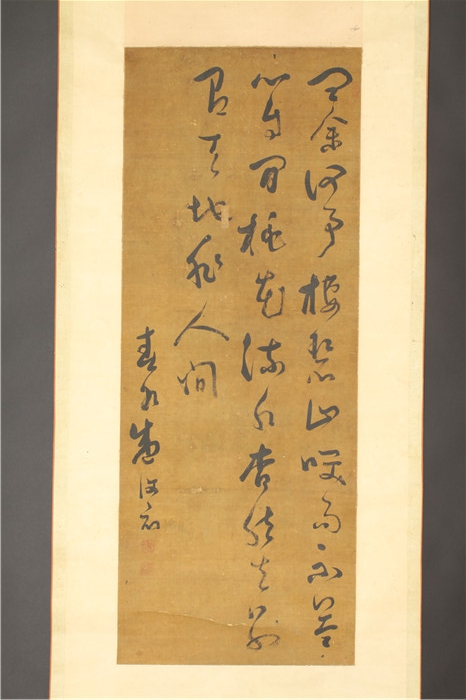 問余何事棲碧山笑而不答
心自閒桃花流水杳然去別
有天地非人間